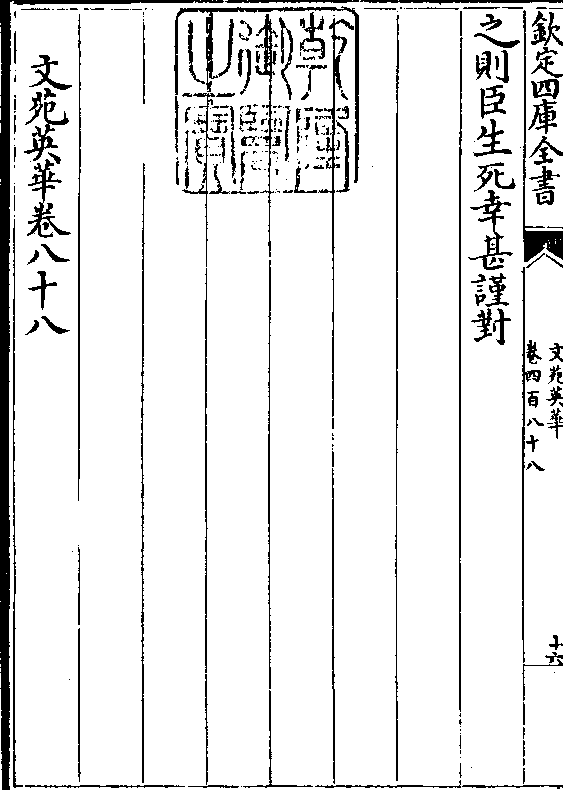 欽定四庫全書
文苑英華
卷四百八十八
十六
之則臣生死幸甚謹對
乾隆
御覽
之寶
文苑英華卷八十八